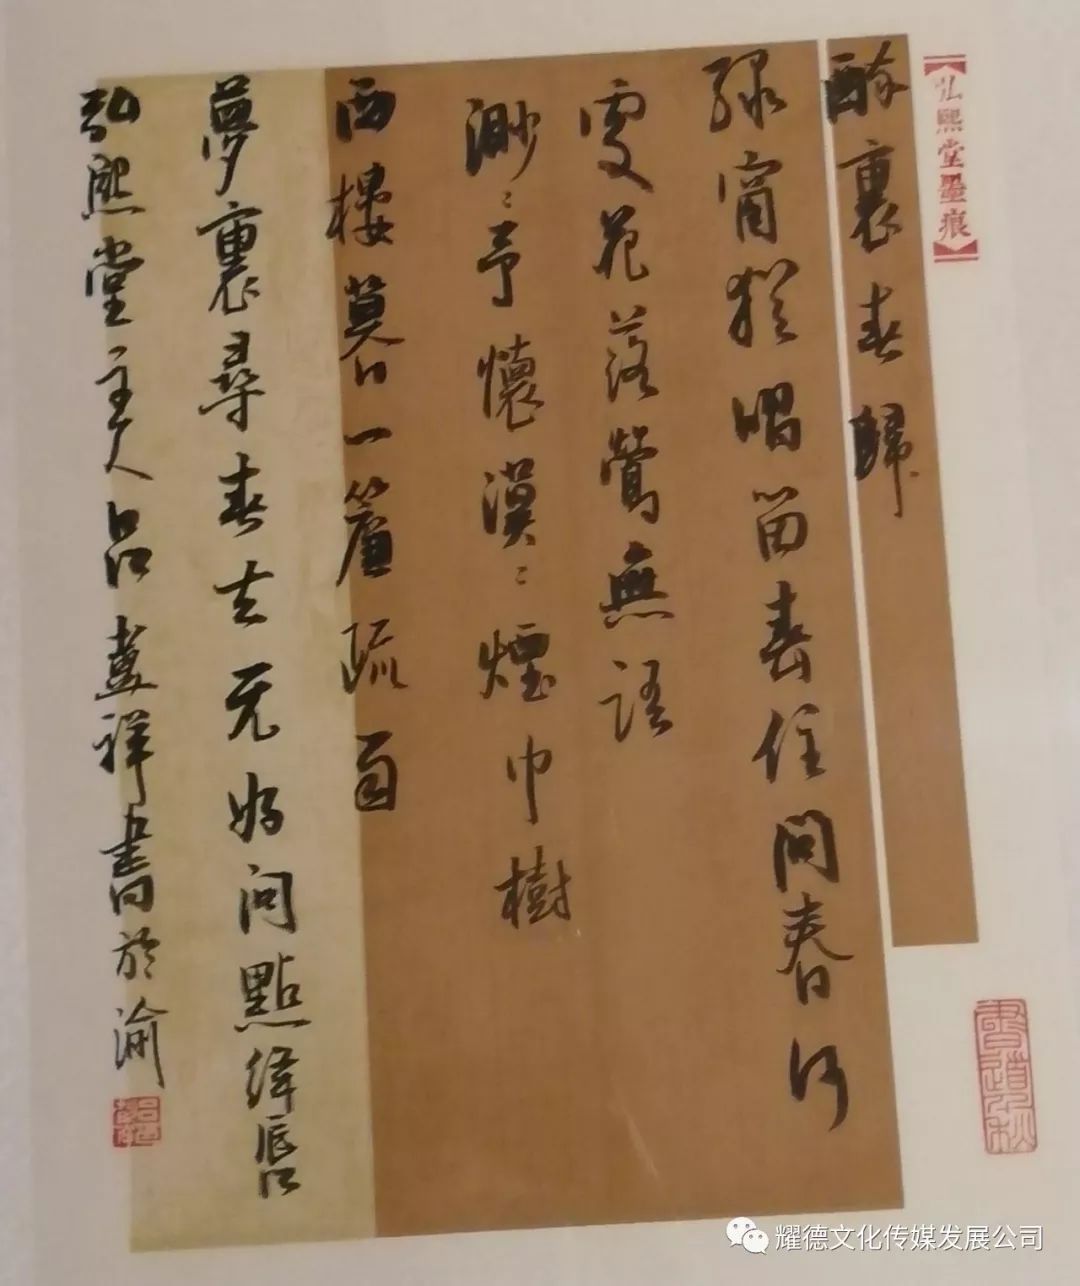 【弘熙堂墨痕】
醉裏春歸
綠窗猶唱留春住問春何
處花落鶯無語
渺〻予懷漠〻煙中樹
西樓暮一簾疏雨
夢裏尋春去元好问點絳唇
弘熙堂主人吕祥書於渝
耀德文化传媒发展公司